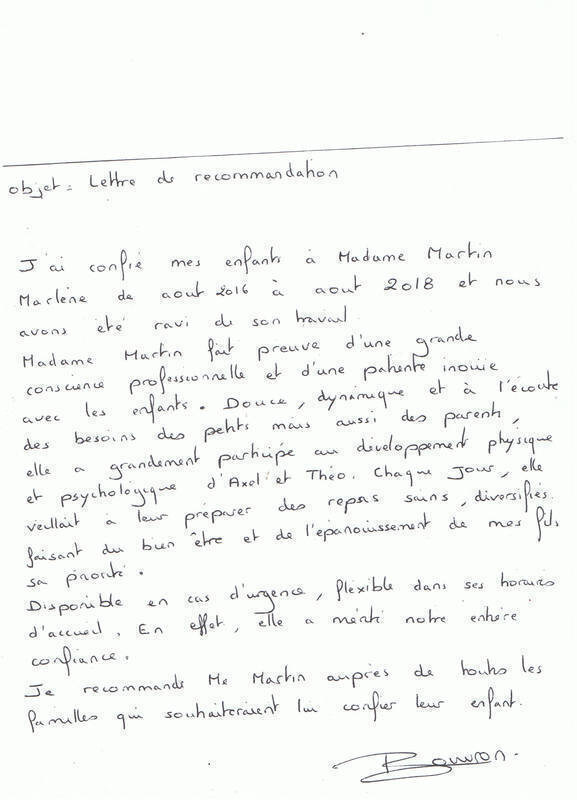 objet : Lettre de recommandation
J'ai confié mes enfants à Madame Martin
Marlène de aout 2016 à aout 2018 et nous
avons été ravi de son travail
Madame Martin fait preuve d'une grande
conscience professionnelle et d'une patiente inouie
avec les enfants. Douce, dynamique et à l'écoute
des besoins des petits mais aussi des parents,
elle a grandement participée au développement physique
et psychologique d'Axel et Théo. Chaque Jour, elle
veillait à leur préparer des repas sains, diversifiés.
faisant du bien être et de l'épanouissement de mes fils
sa priorité.
Disponible en cas d'urgence, flexible dans ses horaires
d'accueil. En effet, elle a mérité notre entière
confiance.
Je recommande Me Martin auprès de toutes les
familles qui souhaiteraient lui confier leur enfant.